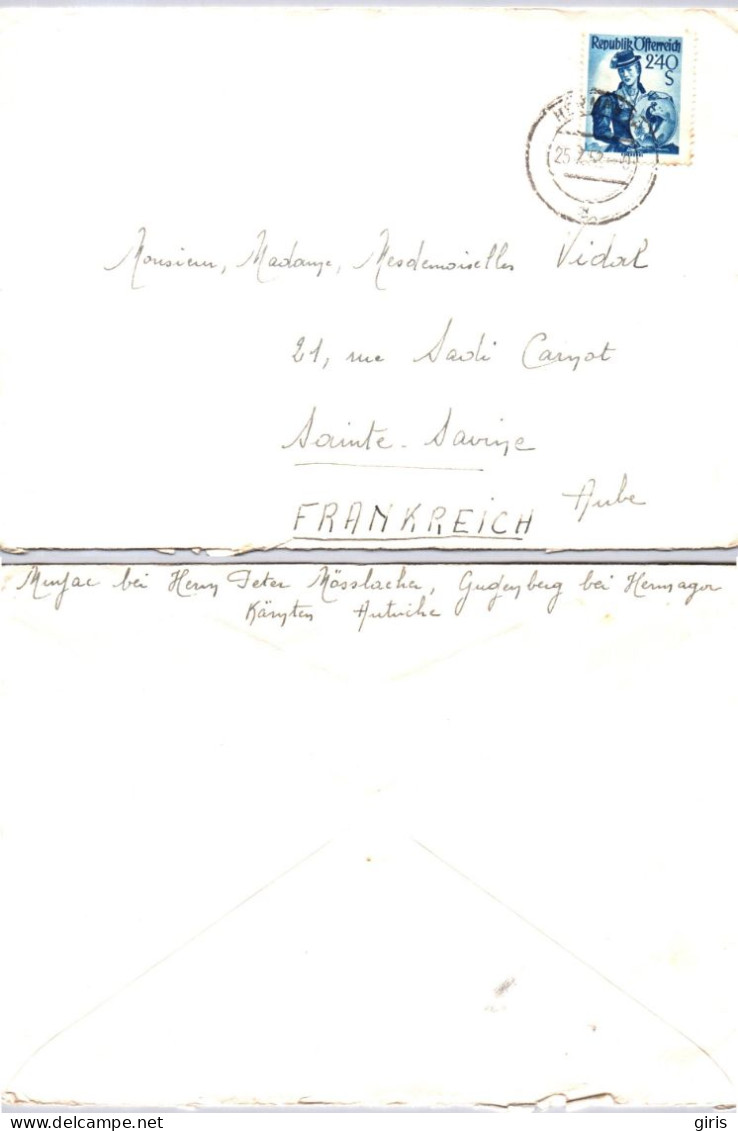 Republik Österreich
2'40
S
HERMAGOR
25.
Monsieur, Madame, Mesdemoiselles Vidal
21, rue Sadi Carnot
Sainte-Savine
Aube
FRANKREICH
bei Herrn Peter Mösslacher, bei Hermagor
Kärnten Autriche
Delcampe.net
giris